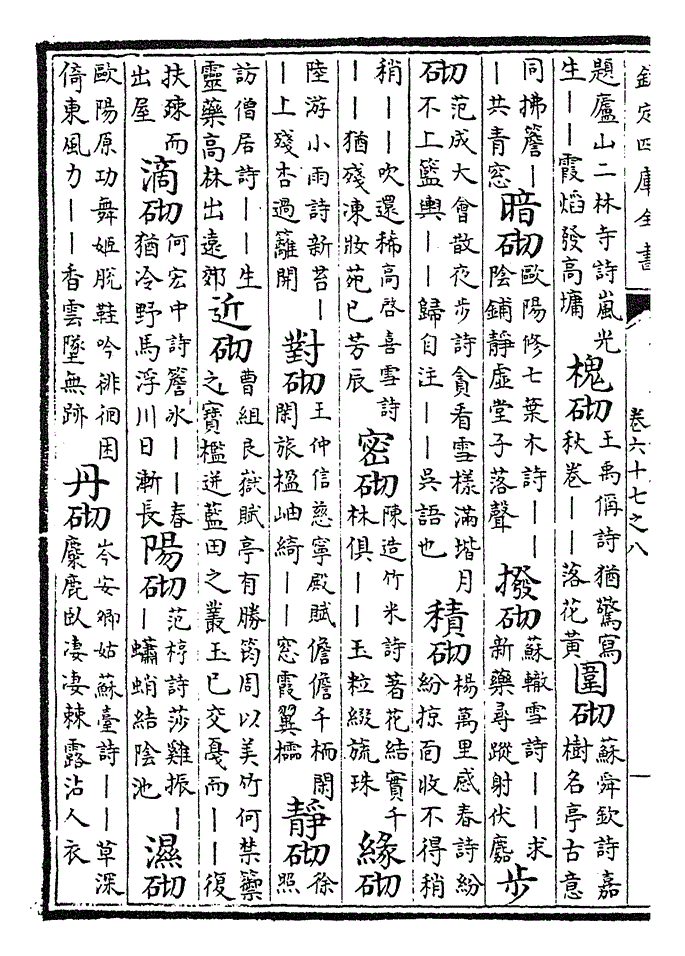 欽定四庫全書 卷六十七之八
題廬山二林寺詩嵐光生丨丨霞焰發高墉 槐砌 王禹偁詩猶驚寫秋卷丨丨落花黃 圍砌 蘇舜欽詩嘉樹名亭古意
同拂簷丨丨共青窓 暗砌 歐陽修七葉木詩丨丨陰鋪靜虛堂子落聲 撥砌 蘇轍雪詩丨丨求新藥尋蹤射伏麏 步
砌 范成大會散夜步詩貪看雪樣滿堦月不上籃輿丨丨歸自注丨丨吳語也 積砌 楊萬里感春詩紛紛掠面收不得稍
稍丨丨吹還稀高啓喜雪詩丨丨猶殘凍妝苑已芳辰 密砌 陳造竹米詩著花結實千林俱丨丨玉粒綴旒珠 緣砌
陸游小雨詩新苔丨丨上殘杏過籬開 對砌 王仲信慈寧殿賦儋儋千柄閑閑旅楹岫綺丨丨窓霞翼櫺 靜砌 徐照
訪僧居詩丨丨生靈藥高林出遠郊 近砌 曹組艮嶽賦亭有勝筠周以美竹何禁籞之寶檻迸藍田之叢玉已交戛而丨丨復
扶疎而出屋 滴砌 何宏中詩簷氷丨丨春猶冷野馬浮川日漸長 陽砌 范梈詩莎雞振丨丨蠨蛸結陰池 濕砌
歐陽原功舞姬脫鞋吟徘徊困倚東風力丨丨香雲墜無跡 丹砌 岑安卿姑蘇臺詩丨丨草深麋鹿卧凄凄棘露沾人衣